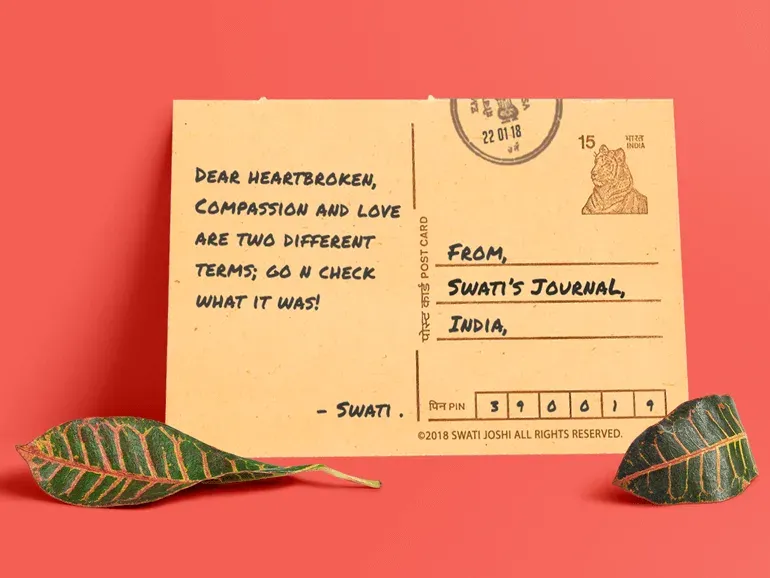 Dear heartbroken,
Compassion and love
are two different
terms; go n check
what it was!
- Swati .
22 01 18
15 भारत
INDIA
पोस्ट कार्ड POST CARD
From,
Swati's Journal,
India,
पिन PIN 3 9 0 0 1 9
©2018 SWATI JOSHI ALL RIGHTS RESERVED.